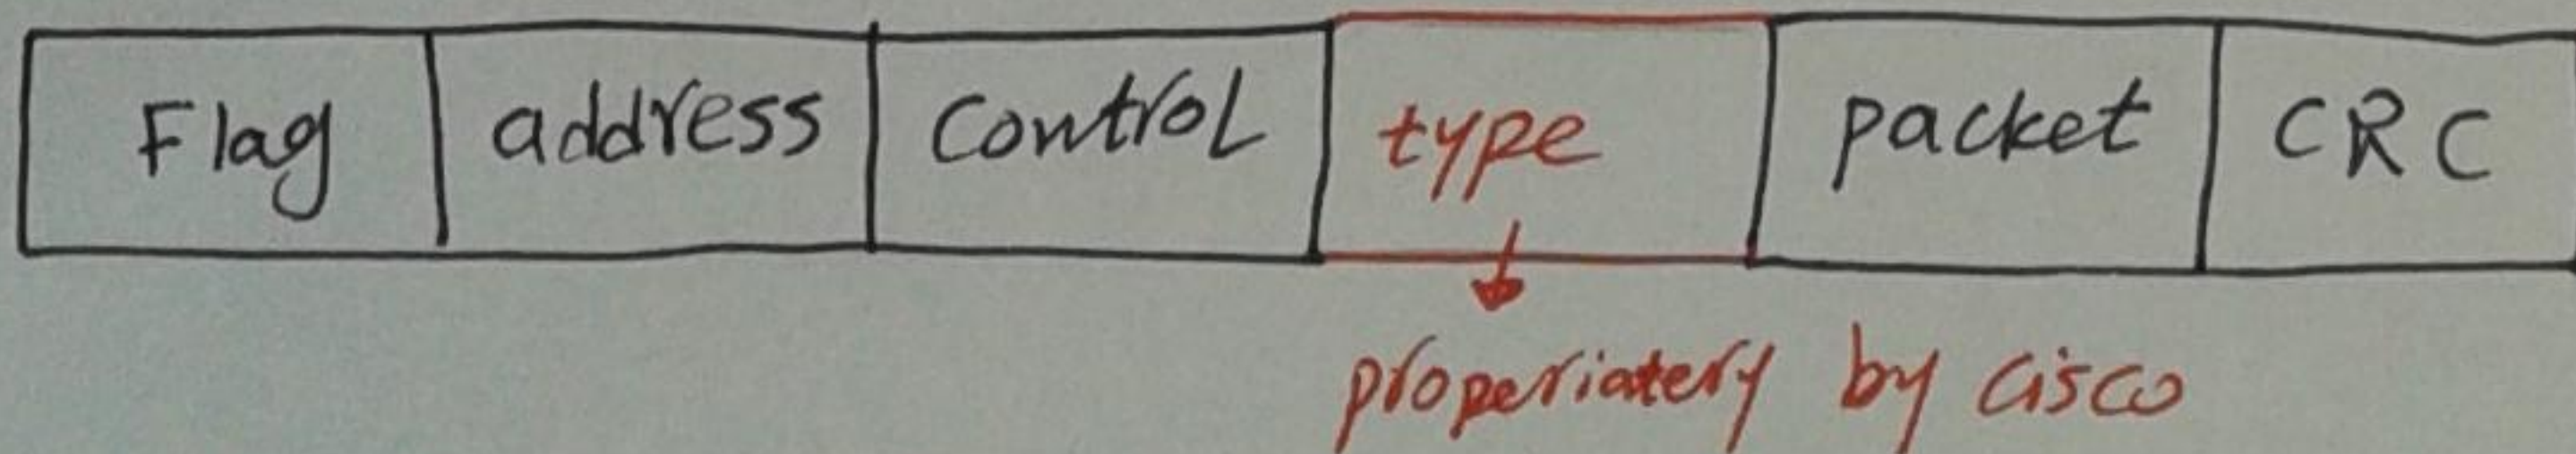 Flag address Control type packet CRC
properiatery by cisco